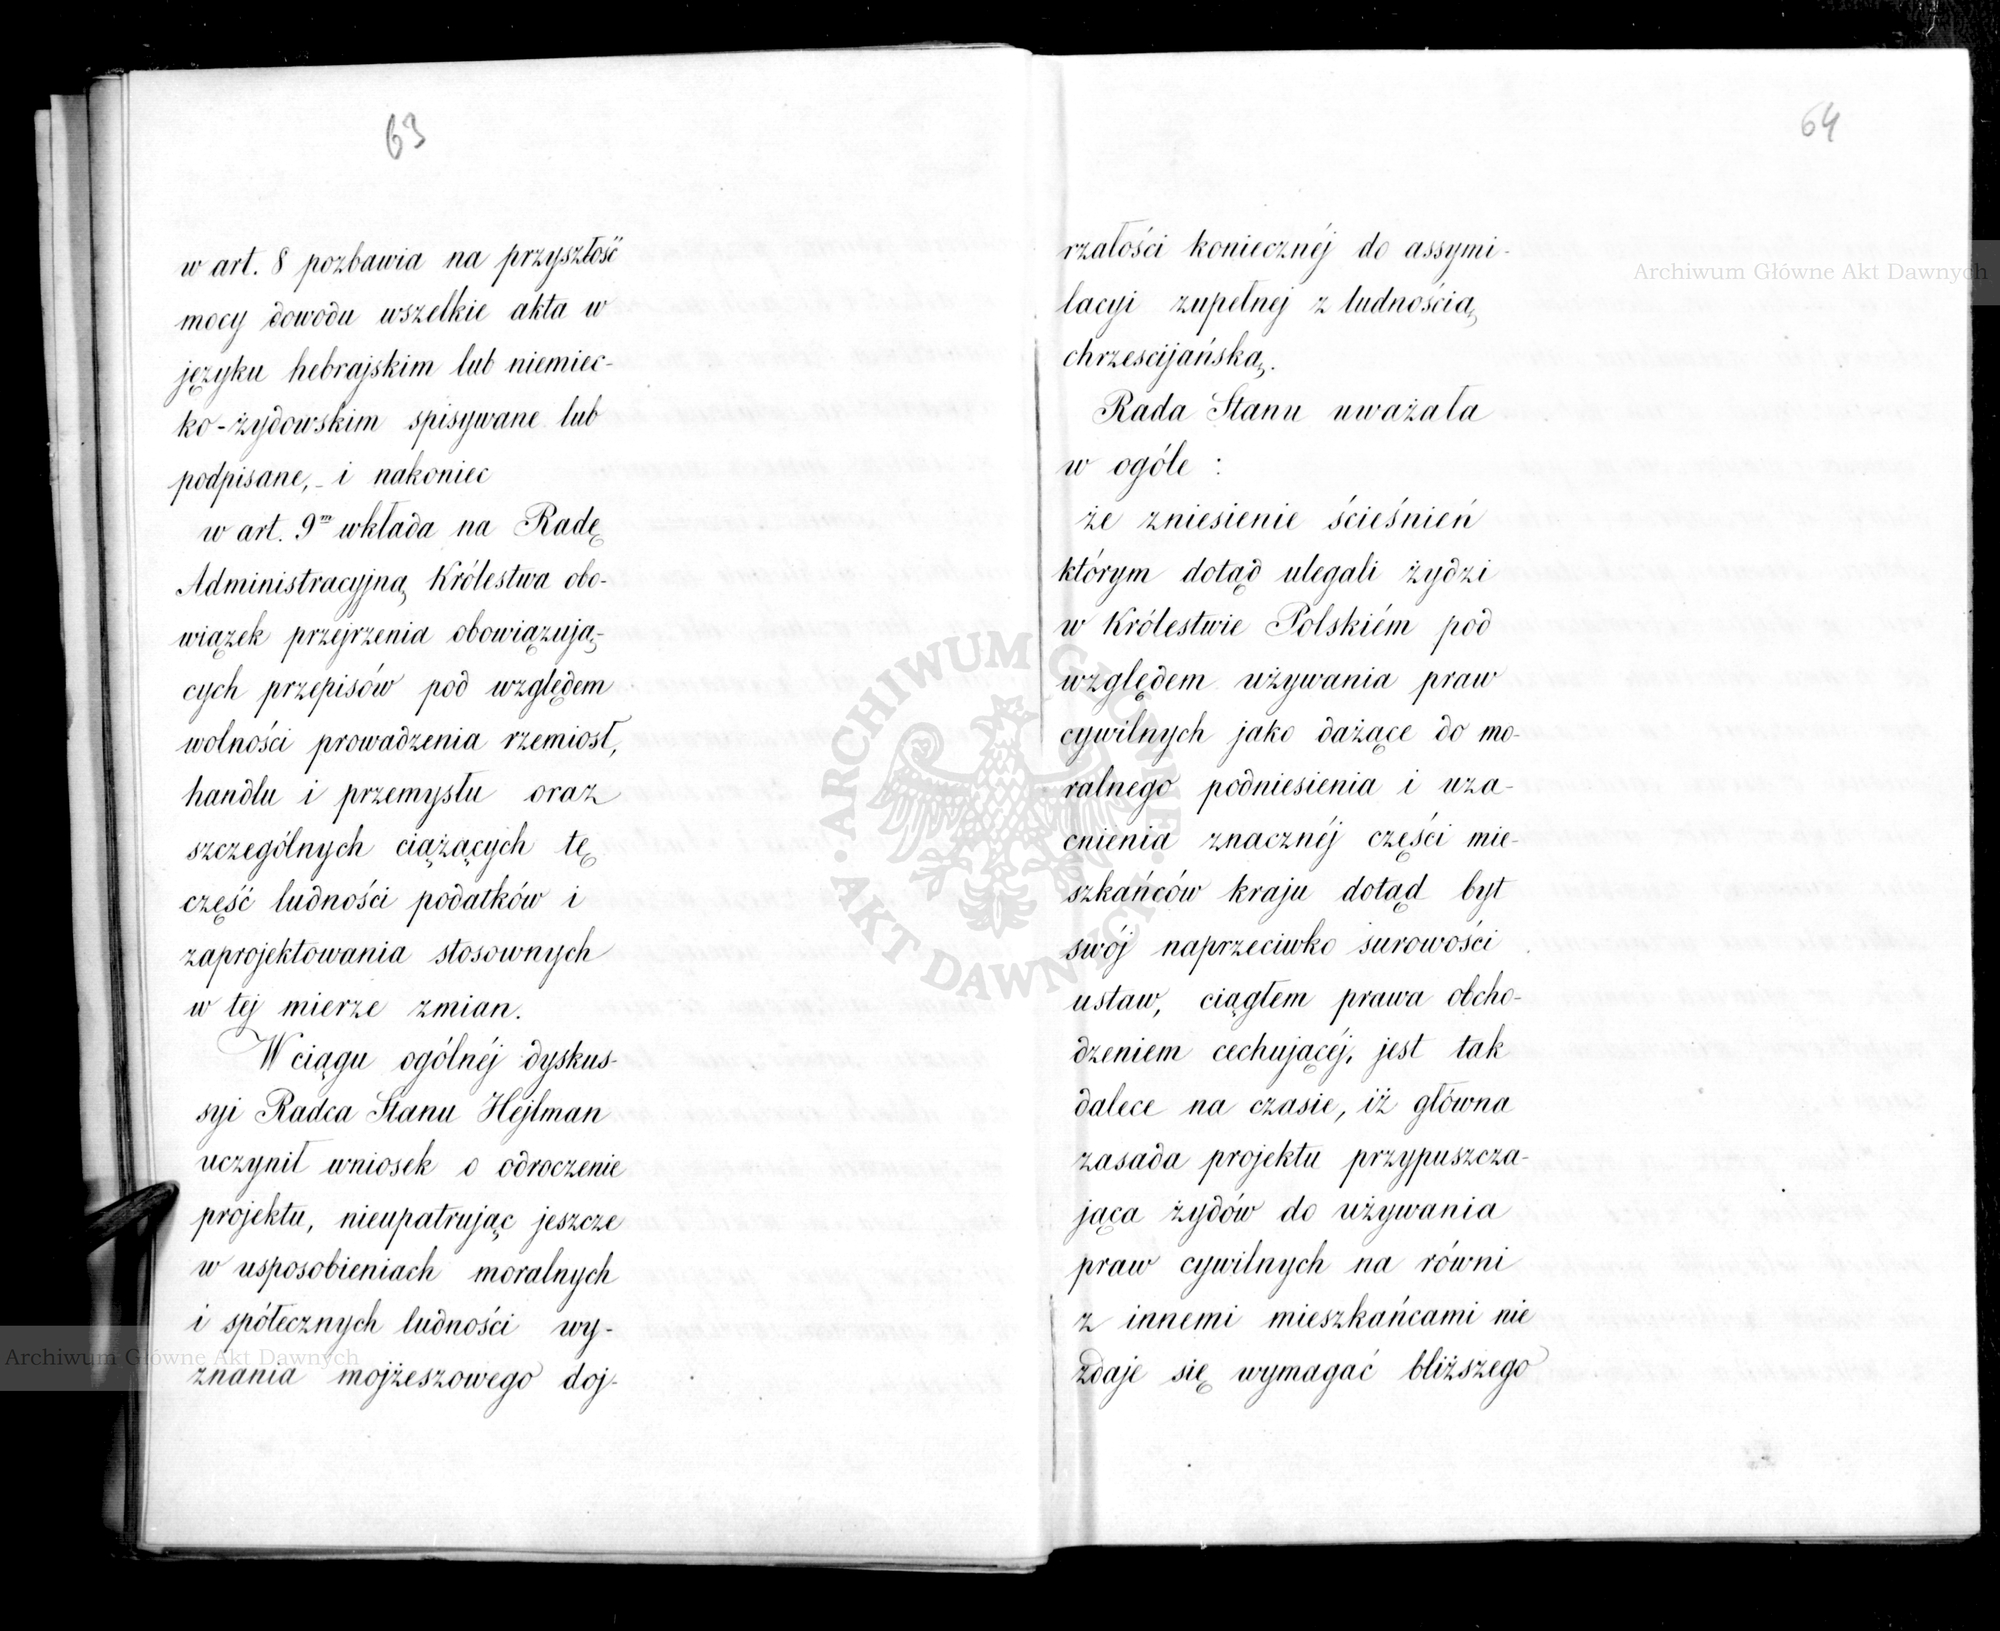 63
w art. 8 pozbawia na przyszłość
mocy dowodu wszelkie akta w
języku hebrajskim lub niemiec-
ko-żydowskim spisywane lub
podpisane, - i nakoniec
w art. 9m wkłada na Radę
Administracyjną Królestwa obo-
wiązek przejrzenia obowiązują-
cych przepisów pod względem
wolności prowadzenia rzemiosł,
handlu i przemysłu oraz
szczególnych ciążących tę
część ludności podatków i
zaprojektowania stosownych
w tej mierze zmian.
W ciągu ogólnéj dyskus-
syi Radca Stanu Hejlman
uczynił wniosek o odroczenie
projektu, nieupatrując jeszcze
w usposobieniach moralnych
i spółecznych ludności wy-
znania mojżeszowego doj-
64
rzałości koniecznéj do assymi-
lacyi zupełnej z ludnością
chrzescijańską.
Rada Stanu uważała
w ogóle :
że zniesienie ścieśnień
którym dotąd ulegali żydzi
w Królestwie Polskiém pod
względem używania praw
cywilnych jako dążące do mo-
ralnego podniesienia i uza-
cnienia znacznéj części mie-
szkańców kraju dotąd byt
swój naprzeciwko surowości
ustaw, ciągłem prawa obcho-
dzeniem cechującéj, jest tak
dalece na czasie, iż główna
zasada projektu przypuszcza-
jąca żydów do używania
praw cywilnych na równi
z innemi mieszkańcami nie
zdaje się wymagać bliższego
Archiwum Główne Akt Dawnych
Archiwum Główne Akt Dawnych
ARCHIWUM GŁÓWNE · AKT DAWNYCH ·